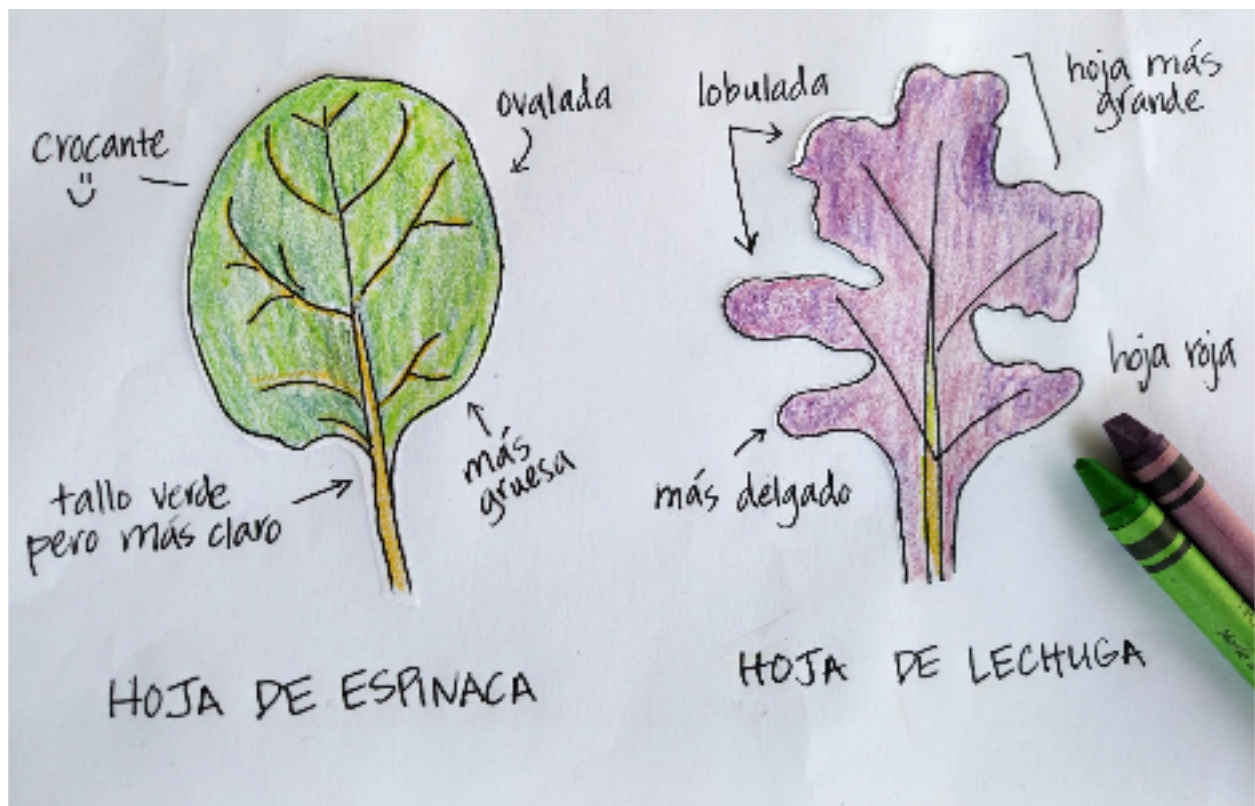 crocante
ovalada
tallo verde
pero más claro
más
gruesa
HOJA DE ESPINACA
lobulada
hoja más
grande
hoja roja
más delgado
HOJA DE LECHUGA